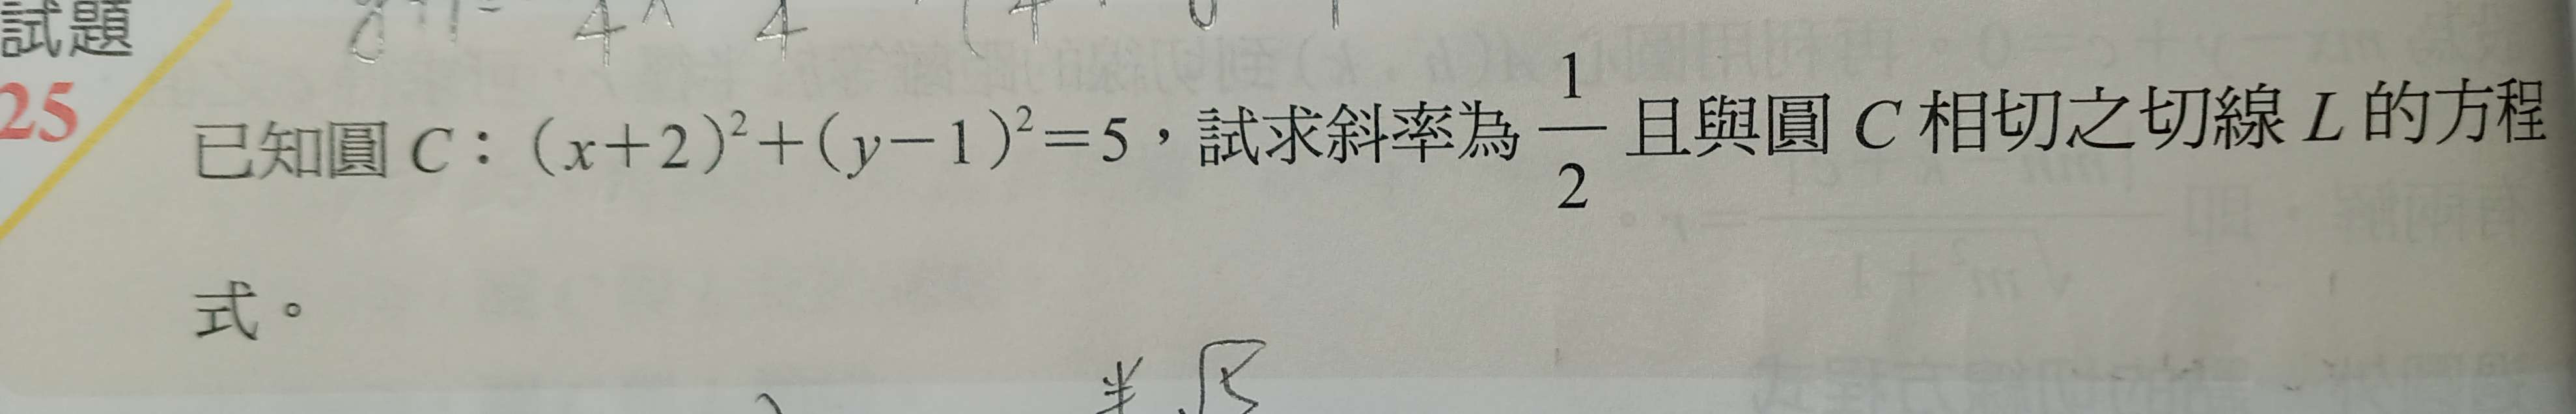 試題
25
已知圓 C：(x+2)²+(y−1)²=5，試求斜率為 1/2 且與圓 C 相切之切線 L 的方程
式。
半 √5